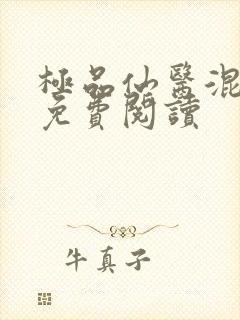 極品仙醫混
免費閱讀
牛真子